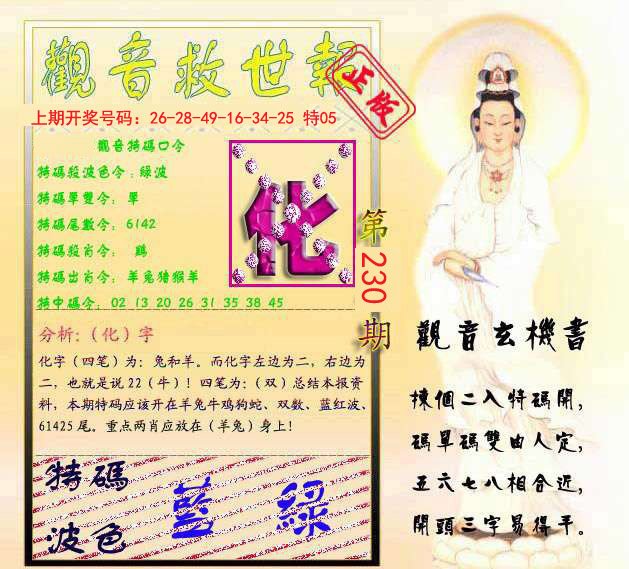 觀音救世報
正版
上期开奖号码：26-28-49-16-34-25 特05
觀音特碼口令
特碼殺波色令：绿波
特碼單雙令： 單
特碼尾數令： 6142
特碼殺肖令： 鷄
特碼出肖令： 羊兔猪猴羊
特中碼令： 02 13 20 26 31 35 38 45
化
第230期
分析：（化）字
化字（四笔）为：兔和羊。而化字左边为二，右边为
二，也就是说22（牛）！四笔为：（双）总结本报资
料，本期特码应该开在羊兔牛鸡狗蛇、双数、蓝红波、
61425尾。重点两肖应放在（羊兔）身上！
特碼
波色
藍 綠
觀音玄機書
揀個二入特碼開，
碼單碼雙由人定，
五六七八相合近，
開頭三字易得平。